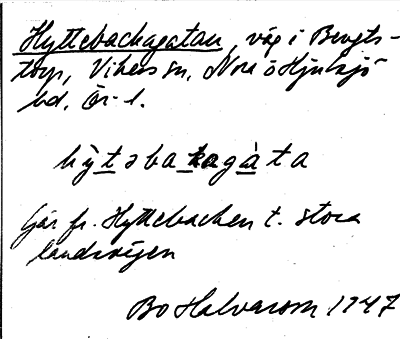 Hyttebackagatan, väg i Bengts-
torp, Vikers sn, Nora o Hjulsjö
bd, Ör. l.
hy̆təbakagàta
Går fr. Hyttebacken t. stora
landsvägen
Bo Halvarson 1947